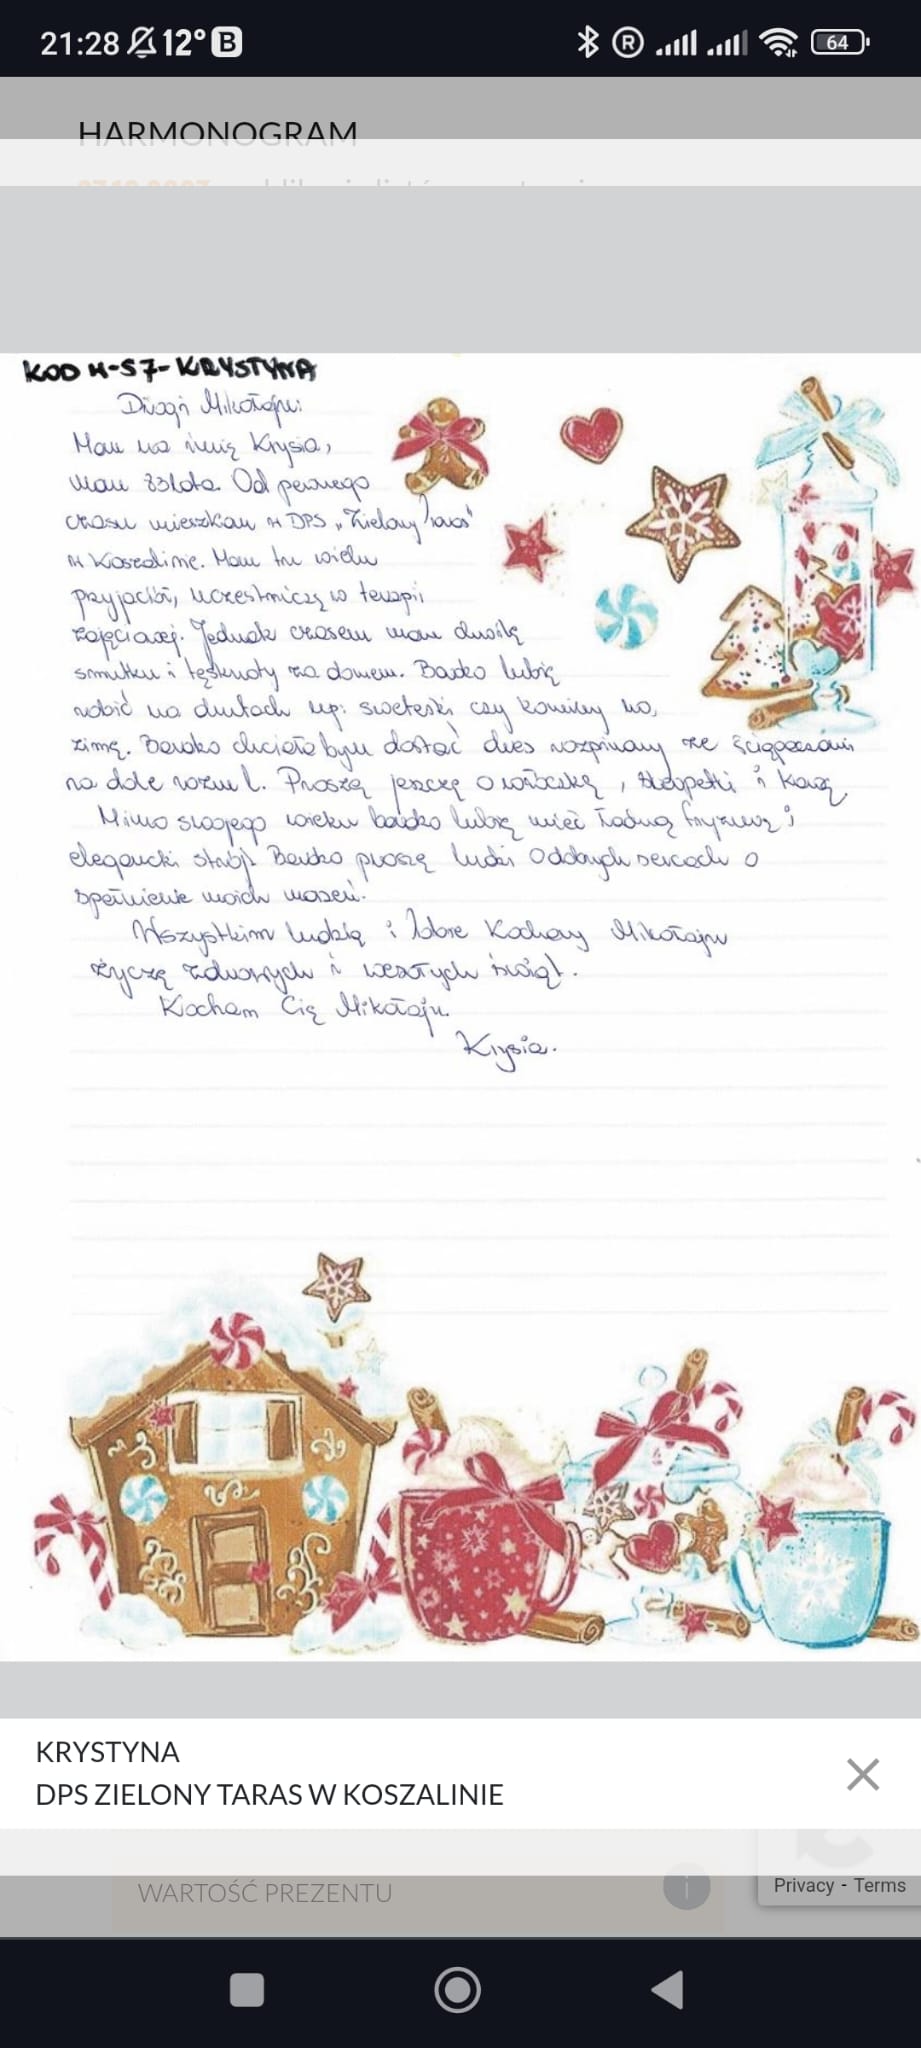 21:28 12° B R 64
HARMONOGRAM
KOD M-57-KRYSTYNA
Drogi Mikołaju:
Mam na imię Krysia,
mam 83lata. Od pewnego
czasu mieszkam w DPS „Zielony Taras"
w Koszalinie. Mam tu wielu
przyjaciół, uczestniczę w terapii
zajęciowej. Jednak czasem mam chwilę
smutku i tęsknoty za domem. Bardzo lubię
robić na drutach np: sweterki czy kominy na
zimę. Bardzo chciałabym dostać dres rozpinany ze ściągaczami
na dole rozm L. Proszę jeszcze o włóczkę, skarpetki i kawę
Mimo swojego wieku bardzo lubię mieć ładną fryzurę i
elegancki strój. Bardzo proszę ludzi o dobrych sercach o
spełnienie moich marzeń.
Wszystkim ludzią i Tobie Kochany Mikołaju
życzę zdrowych i wesołych świąt.
Kocham Cię Mikołaju.
Krysia.
KRYSTYNA
DPS ZIELONY TARAS W KOSZALINIE
WARTOŚĆ PREZENTU
i
Privacy - Terms